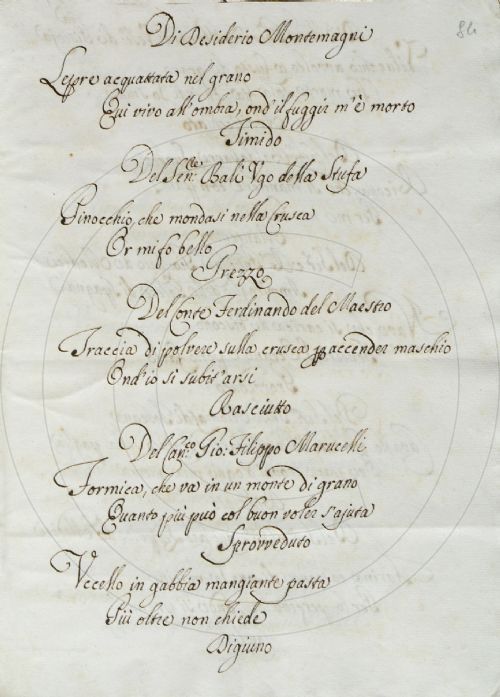 84
Di Desiderio Montemagni
Lepre acquattata nel grano
Qui vivo all'ombra, ond'il fuggir m'è morto
Timido
Del Sen:re Balì Vgo della Stufa
Pinocchio, che mondasi nella Crusca
Or mi fo bello
Grezzo
Del Conte Ferdinando del Maestro
Traccia di polvere sulla crusca ꝑ accender maschio
Ond'io sì subit'arsi
Rasciutto
Del Can:co Gio: Filippo Marucelli
Formica, che va in un monte di grano
Quanto più può col buon voler s'ajuta
Sprovveduto
Vcello in gabbia mangiante pasta
Più oltre non chiede
Digiuno